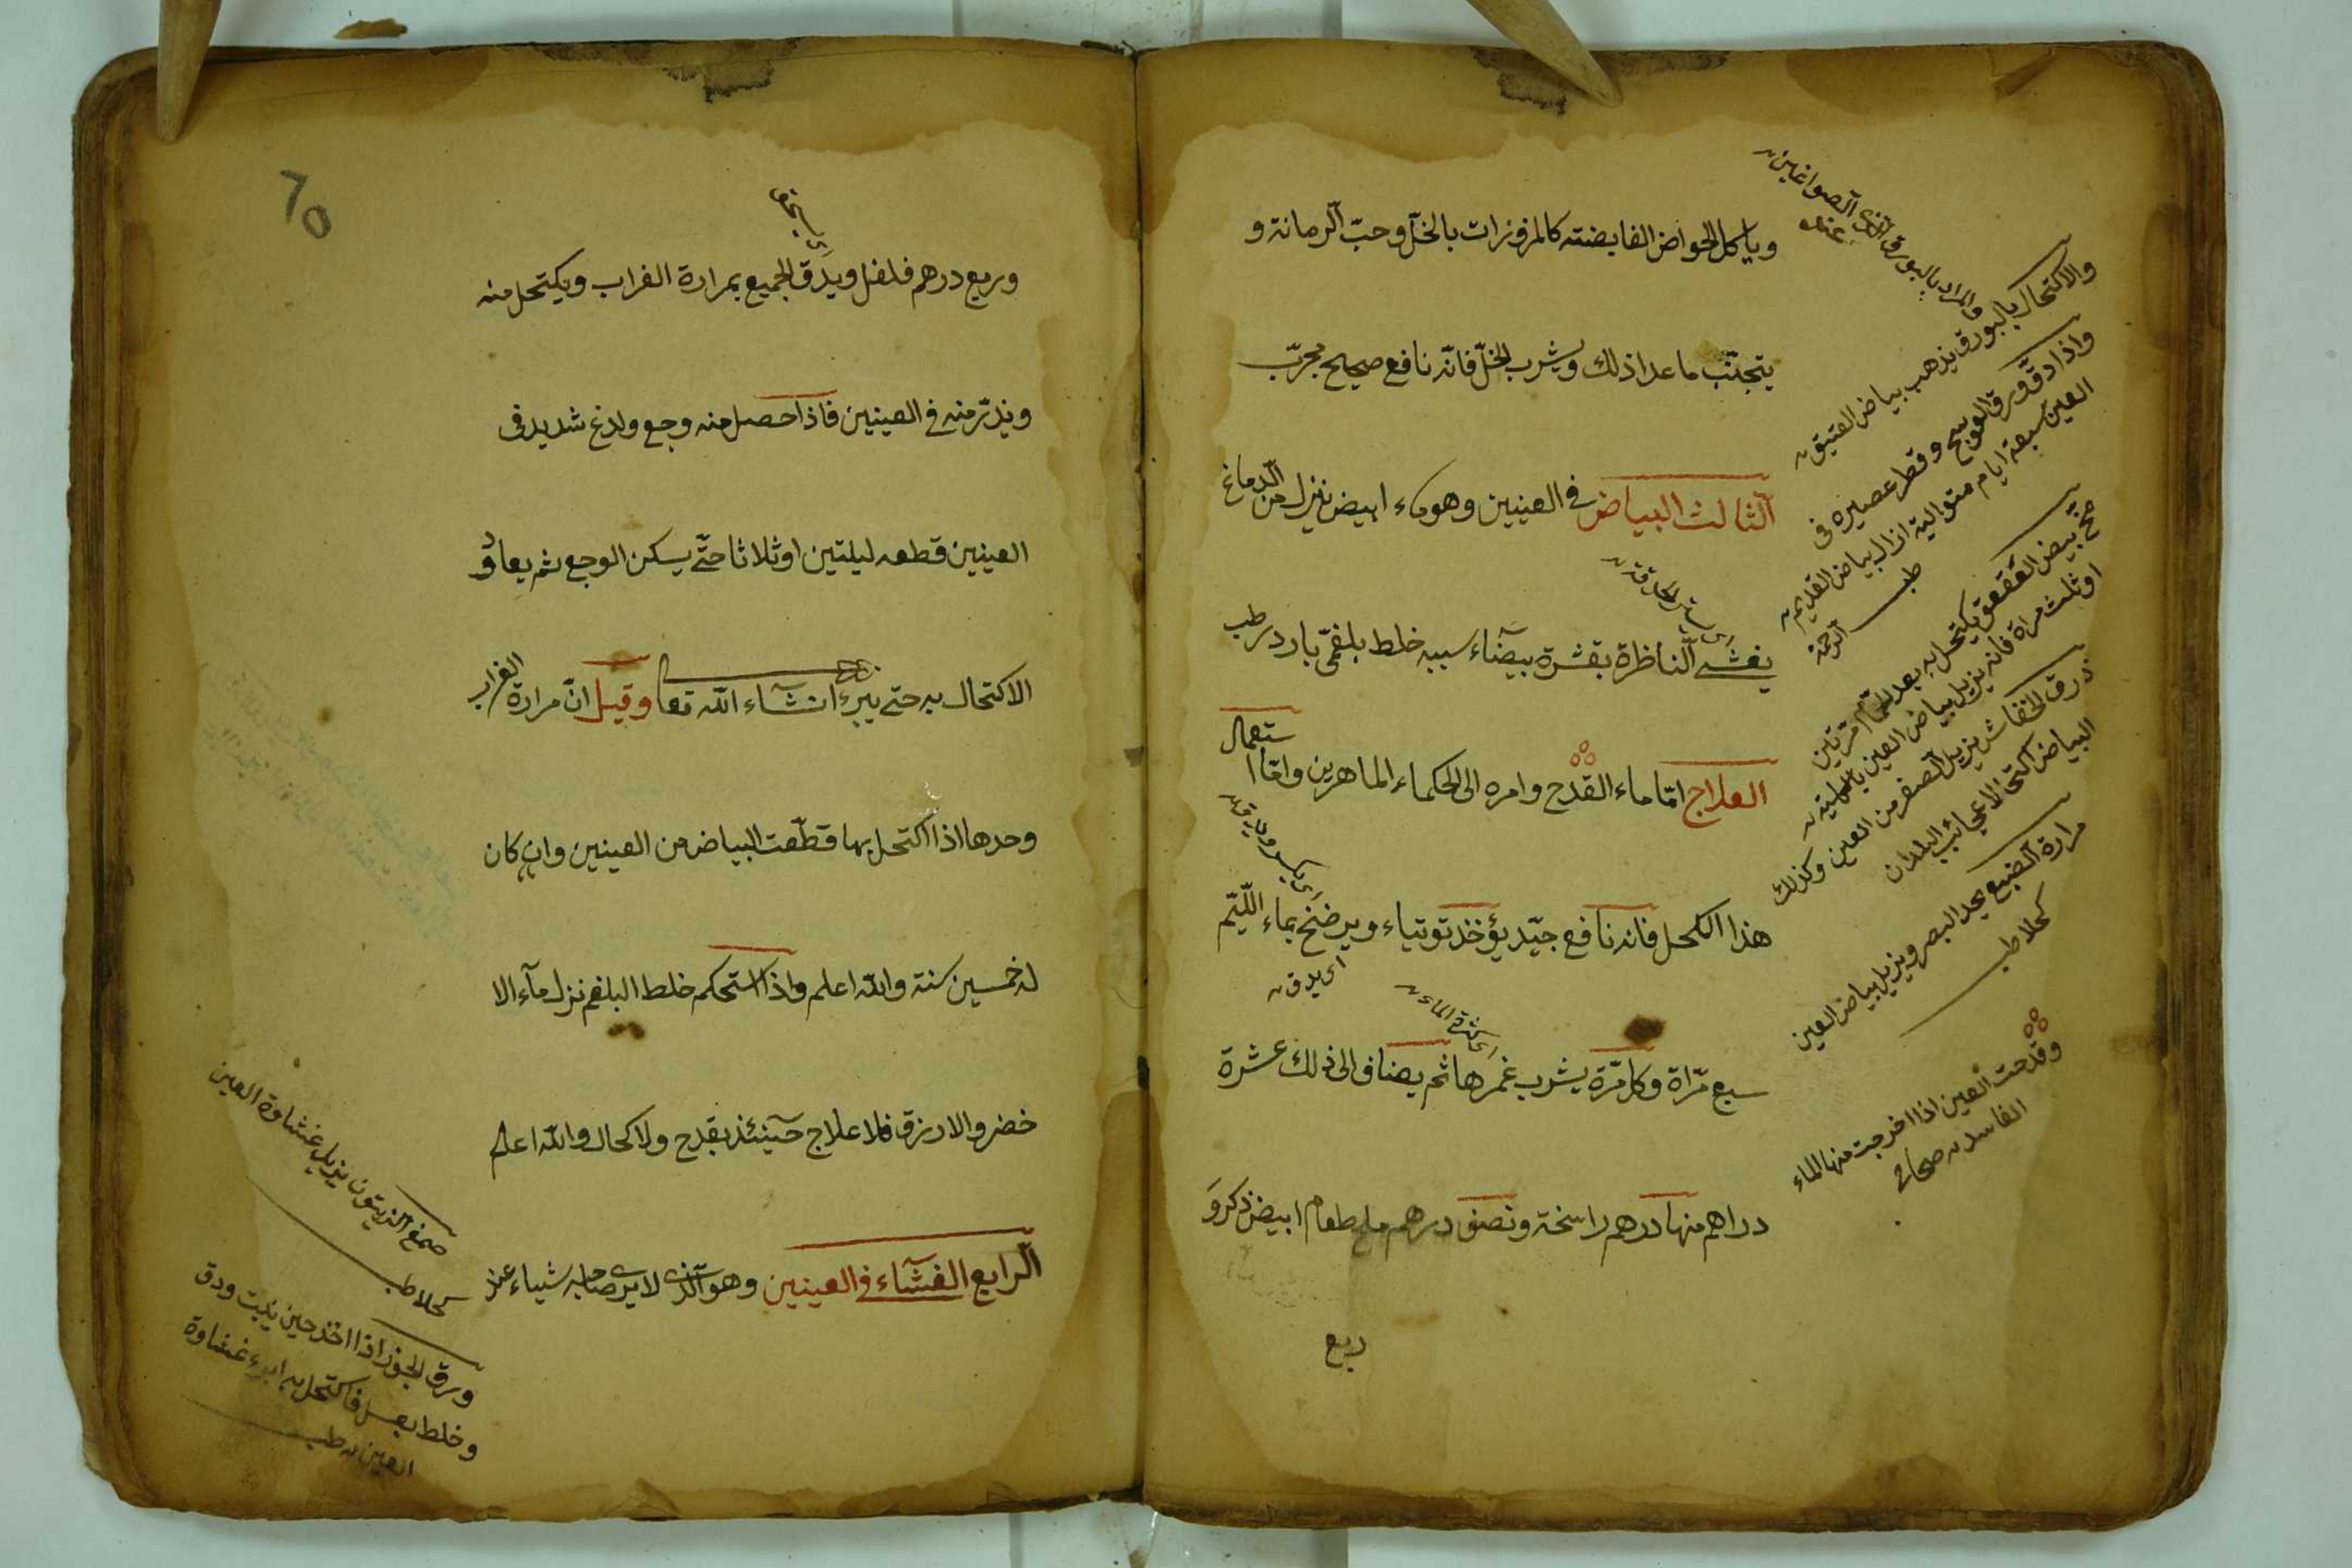 وياكل الحوامض القابضته كالمزوزرات بالخلّ وحبّ الرمانة و
يتجنّب ما عدا ذلك ويشرب الخلّ فانّه نافع صحيح مجرّب
الثالث البياض في العينين وهو ماء ابيض ينزل من الدماغ
يغشى الناظرة بقشرة بيضآء سببه خلط بلغمىّ بارد رطب
العلاج امّا ماء القدح وامره الى الحكماء الماهرين وامّا استعمال
هذا الكحل فانه نافع جيّد يؤخذ توتياء ويرضخ بماء الليّم
سبع مرّاة وكل مرّة يشرب غمرها ثم يضاف الى ذلك عشرة
دراهم منها درهم راسخة ونصف درهم ملح طعام ابيض ذكر و
ربع
والمراد بالبورق الذى الصواغين
عند
والاكتحال بالبورق يذهب بياض العتيق
واذا دقّ ورق العوسج وقطر عصيره فى
العين سبعة ايام متوالية ازال بياض القديم
طب الرحمة
مخ بيض العقعق يكتحل به بعد الحمّام مرّتين
او ثلث مراة فانه يزيل بياض العين بالكلية
ذرق الخفاش يزيل الصفر من العين وكذلك
البياض اكتحالا عجائب البلدان
مرارة الضبع يحد البصر ويزيل بياض العين
كحلا طب
وقدحت العين اذا اخرجت منها الماء
الفاسد صحاح
اى ستر الحدقة
اى يدق
اى كثرة الماء
وربع درهم فلفل ويدق الجميع بمرارة الغراب ويكتحل منه
ويذرّ منه في العينين فاذا حصل منه وجع ولدغ شديد فى
العينين قطعه ليلتين او ثلاثا حتّى يسكن الوجع ثم يعاود
الاكتحال به حتى يبرء انشآء الله تعا وقيل انّ مرارة الغراب
وحدها اذا اكتحل بها قطّعت البياض من العينين وان كان
له خمسين سنة والله اعلم واذا استحكم خلط البلغم نزل مآء الا
خضر والازرق فلا علاج حينئذ بقدح ولا كحال والله اعلم
الرابع الغشآء في العينين وهو الذى لا يرى صاحبه شياء عند
اى يسحق
صمغ الزيتون يزيل غشاوة العين
كحلا طب
ورق الجوز اذا اخذ حين ينبت ودق
وخلط بعسل فاكتحل به ابرء غشاوة
العين طب